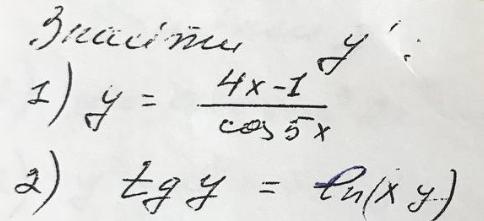 Знайти y':
1) y = \frac{4x-1}{cos 5x}
2) tg y = ln(xy)